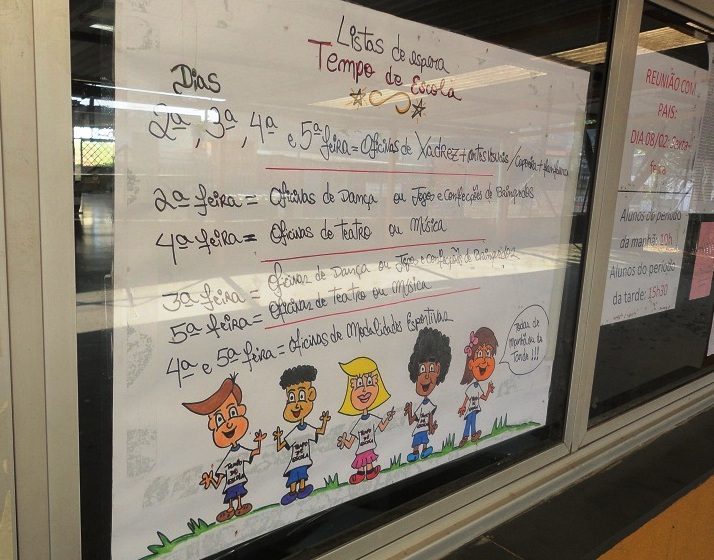 Listas de espera
Tempo de Escola
Dias
2ª, 3ª, 4ª e 5ª feira = Oficinas de Xadrez + Artes Visuais / Capoeira +
2ª feira = Oficinas de Dança ou Jogos e Confecções de Brinquedos
4ª feira = Oficinas de Teatro ou Música
3ª feira = Oficinas de Dança ou Jogos e Confecções de Brinquedos
5ª feira = Oficinas de Teatro ou Música
4ª e 5ª feira = Oficina de Modalidades Esportivas
Todas de
manhã ou de
tarde!!!
TEMPO DE ESCOLA
TEMPO DE ESCOLA
TEMPO DE ESCOLA
REUNIÃO COM
PAIS:
DIA 08/02: Sexta-
feira
Alunos do período
da manhã: 10h
Alunos do período
da tarde: 15h30